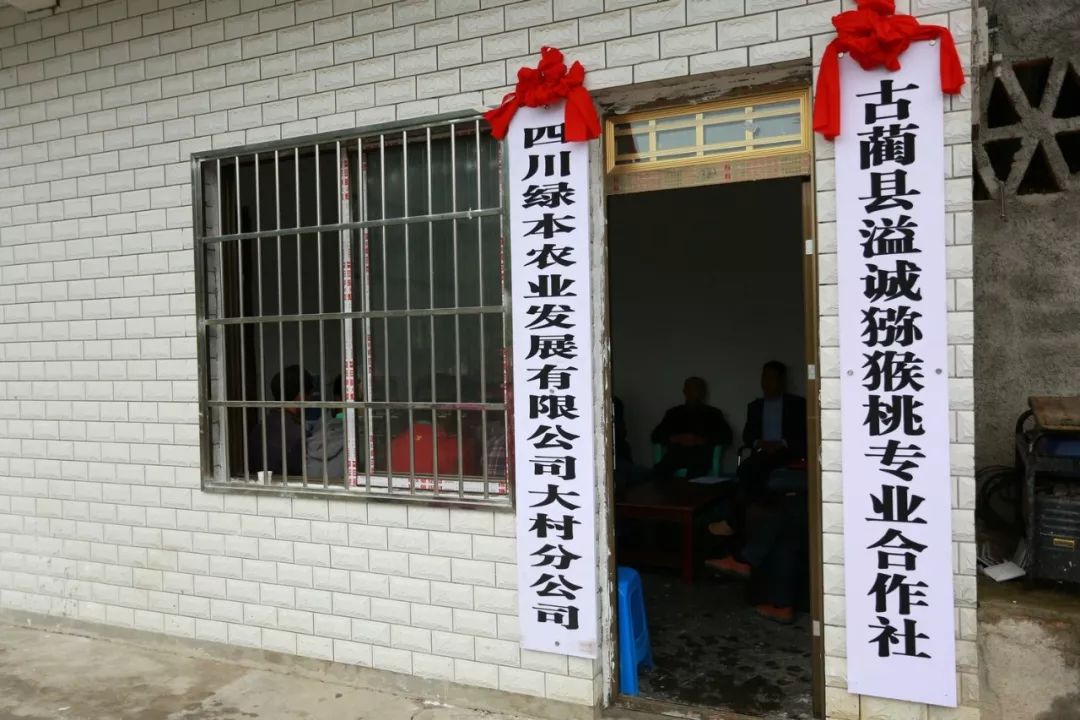 四川绿本农业发展有限公司大村分公司
古蔺县溢诚猕猴桃专业合作社